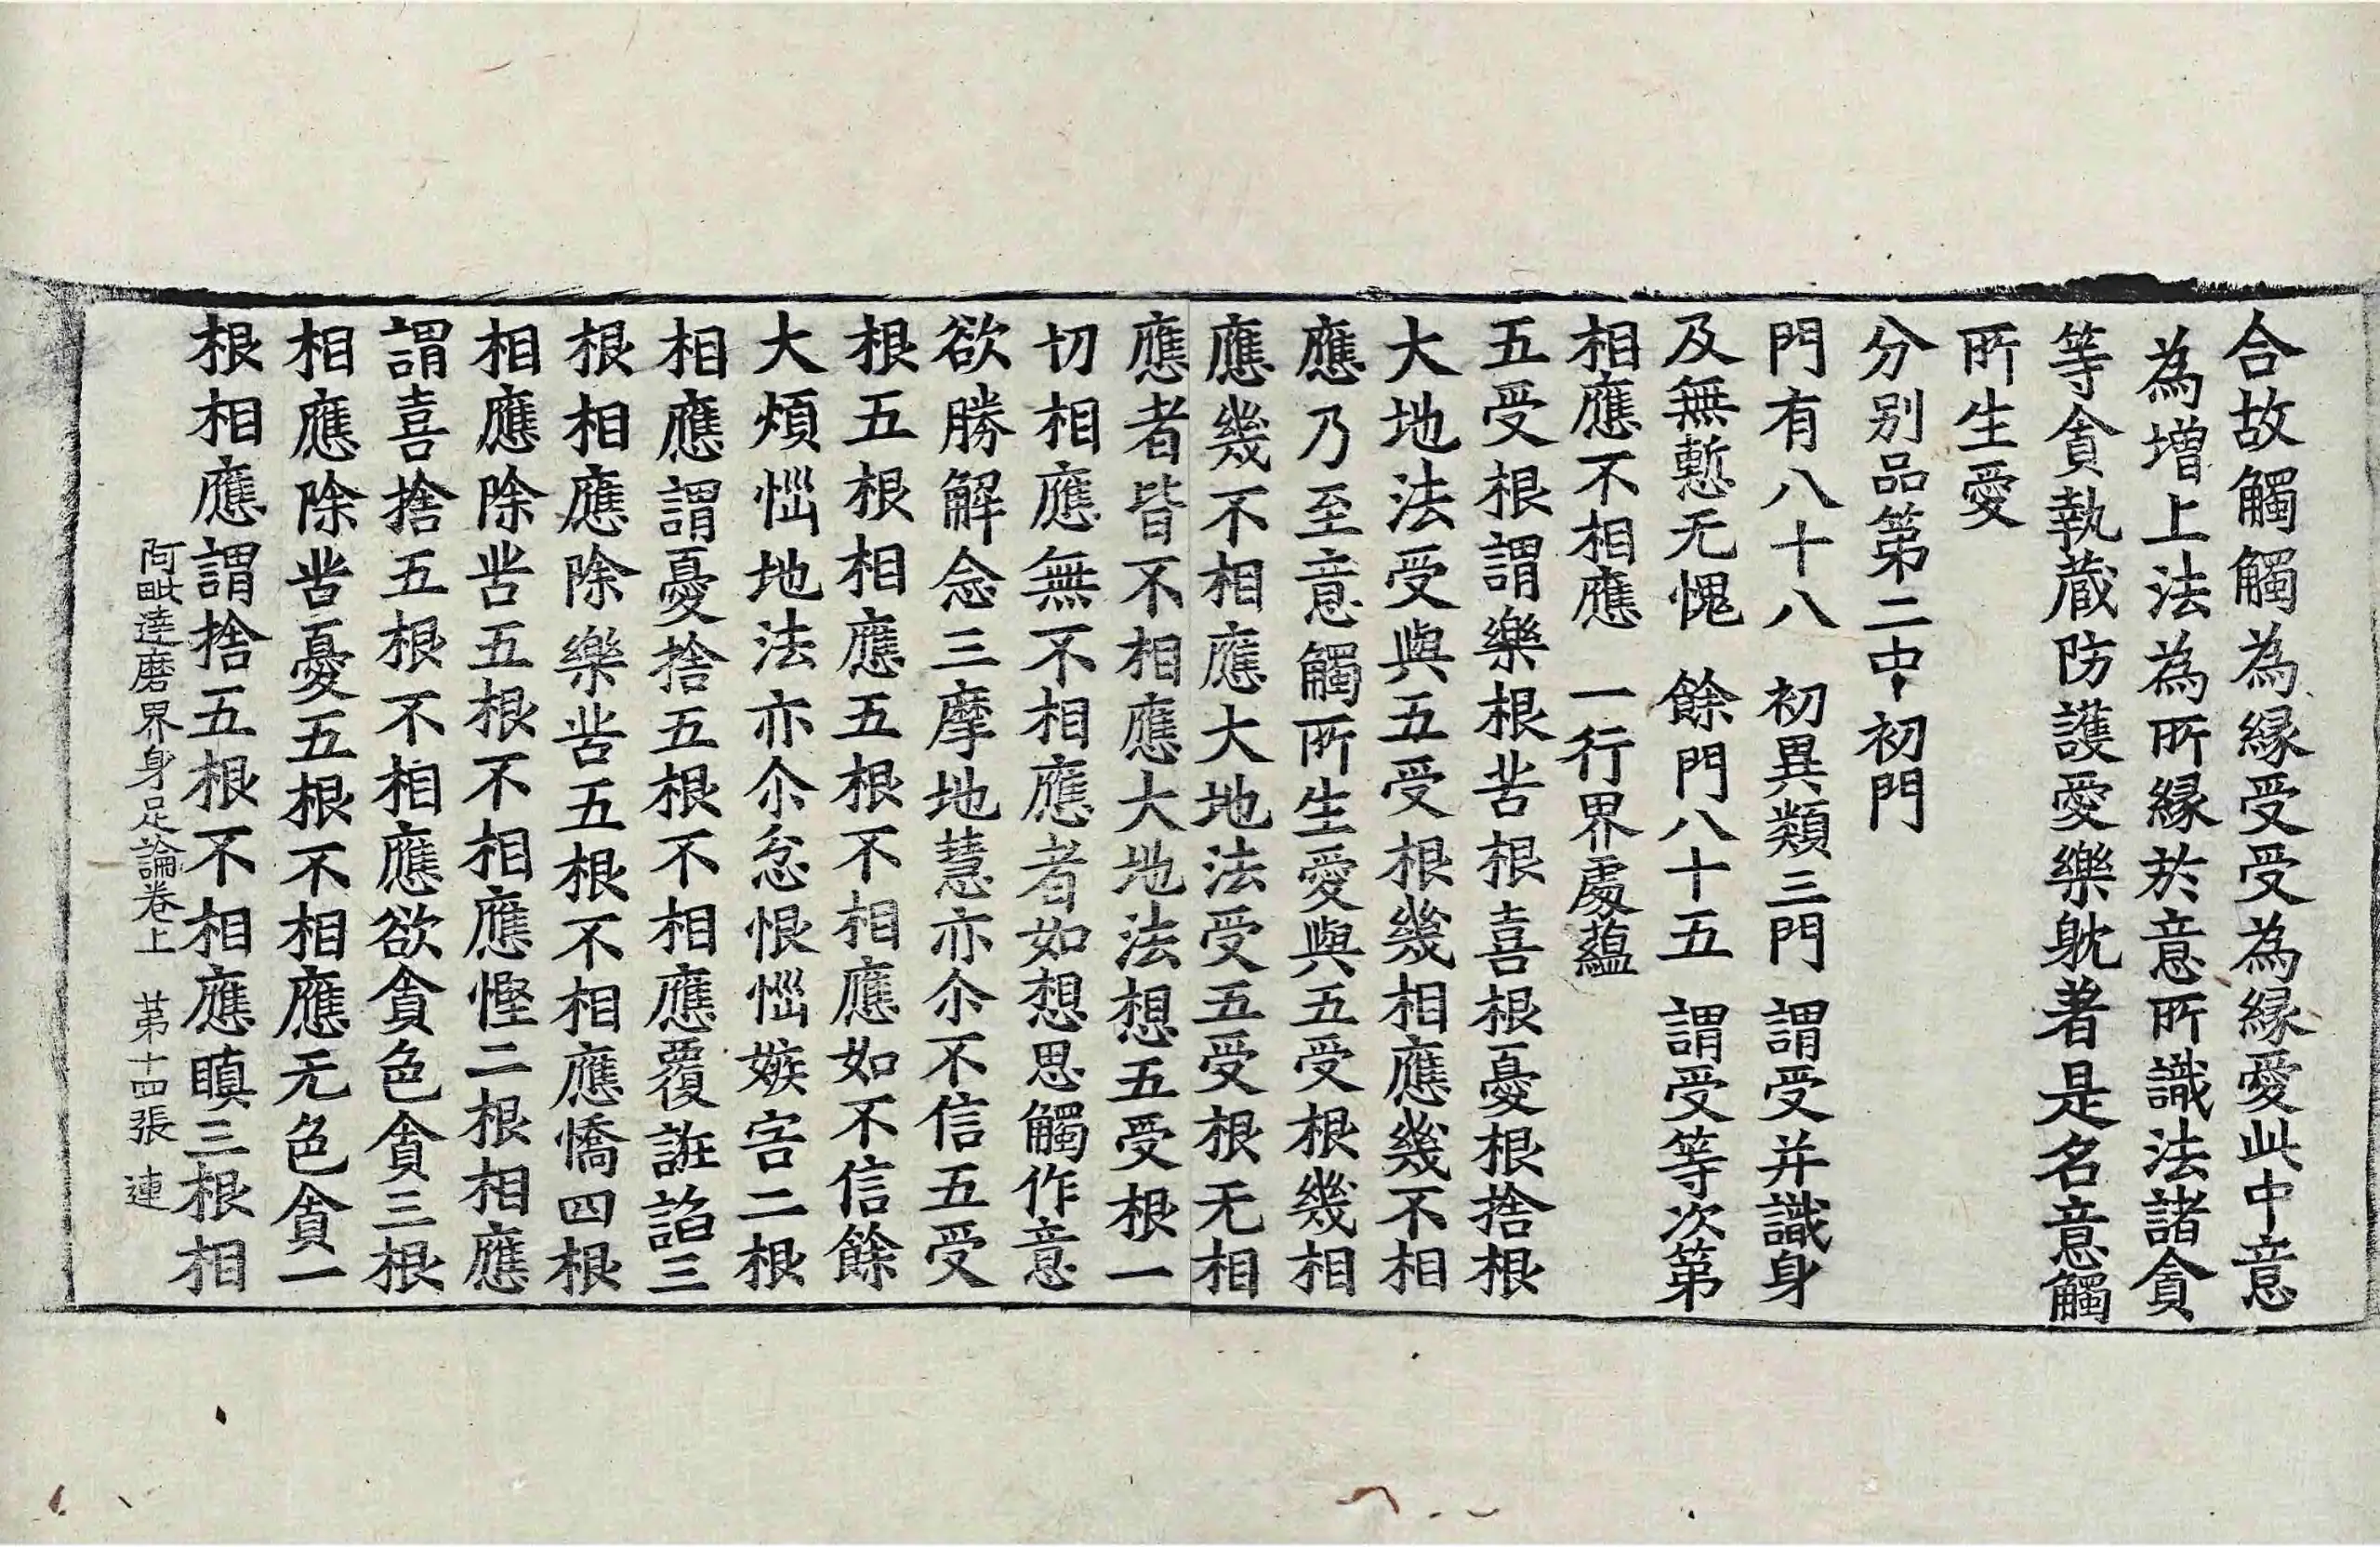 合故觸觸為縁受受為縁愛此中意
為増上法為所縁於意所識法諸貪
等貪執蔵防護愛樂躭著是名意觸
所生愛
分别品第二中初門
門有八十八 初異類三門 謂受并識身
及無慙无愧 餘門八十五 謂受等次第
相應不相應 一行界處蘊
五受根謂樂根苦根喜根憂根捨根
大地法受與五受根幾相應幾不相
應乃至意觸所生愛與五受根幾相
應幾不相應大地法受五受根无相
應者皆不相應大地法想五受根一
切相應無不相應者如想思觸作意
欲勝解念三摩地慧亦尒不信五受
根五根相應五根不相應如不信餘
大煩惱地法亦尒忿恨惱嫉害二根
相應謂憂捨五根不相應覆誑諂三
根相應除樂苦五根不相應憍四根
相應除苦五根不相應慳二根相應
謂喜捨五根不相應欲貪色貪三根
相應除苦憂五根不相應无色貪一
根相應謂捨五根不相應瞋三根相
阿毗達磨界身足論卷上 苐十四張 連